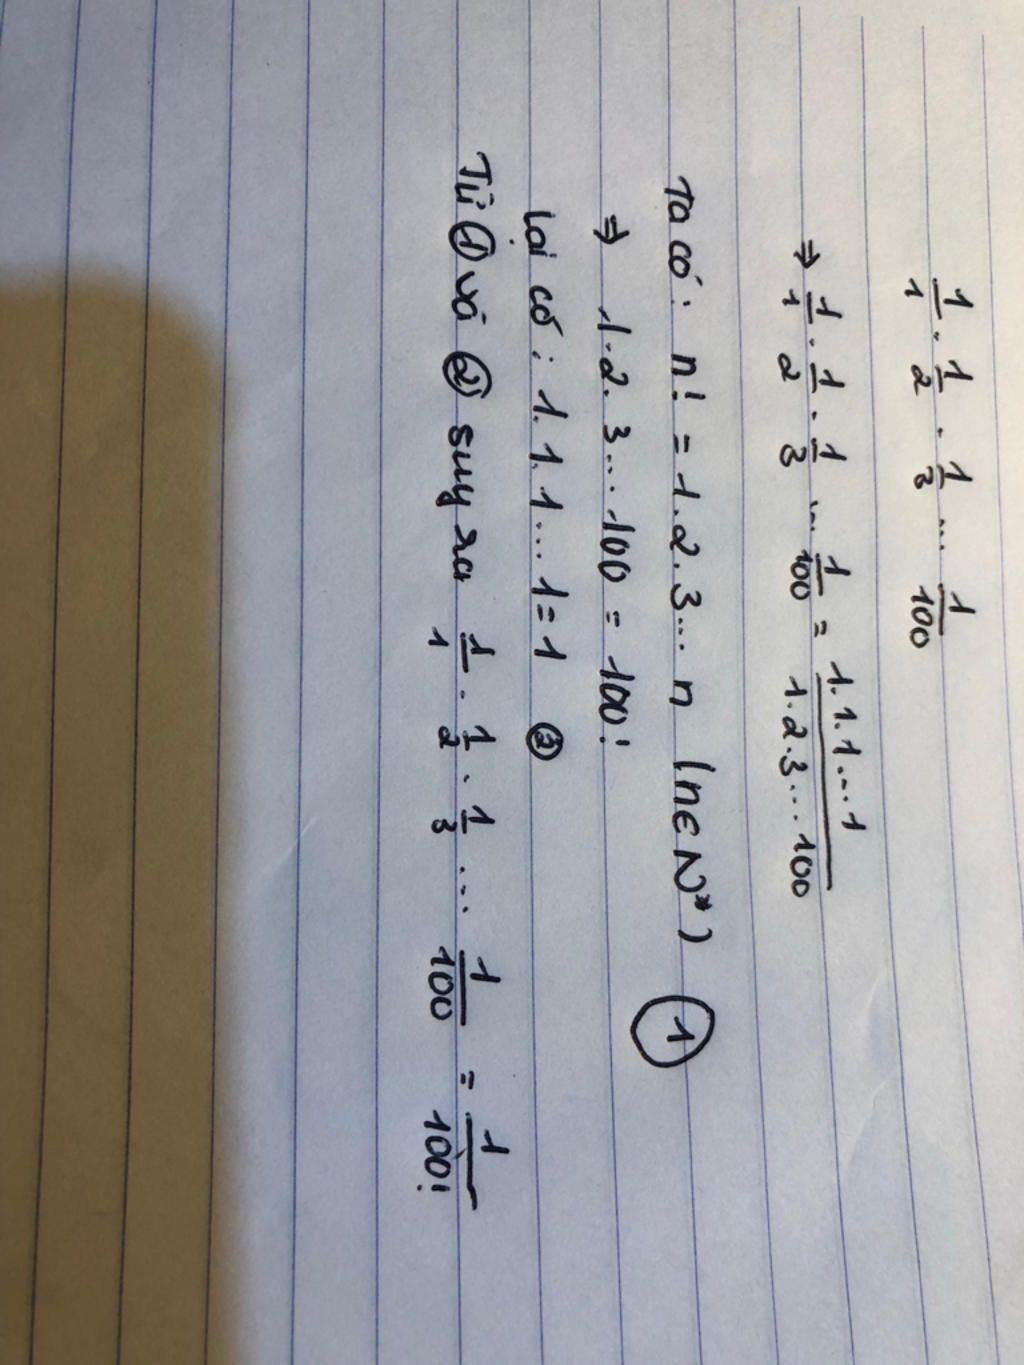 1/1 . 1/2 . 1/3 ... 1/100
⇒ 1/1 . 1/2 . 1/3 ... 1/100 = 1.1.1...1/1.2.3...100
Ta có: n! = 1.2.3... n (n∈N*) ①
⇒ 1.2.3...100 = 100!
Lại có: 1.1.1...1=1 ②
Từ ① và ② suy ra 1/1 . 1/2 . 1/3 ... 1/100 = 1/100!